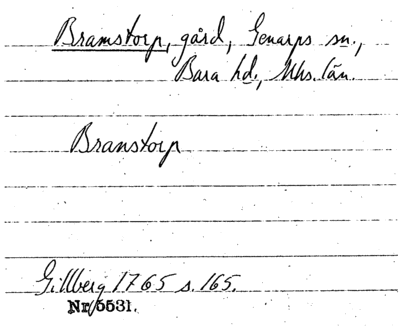 Bramstorp, gård, Genarps sn.,
Bara hd., Mhs. län.
Branstorp
Gillberg 1765 s. 165.
Nr 5531.